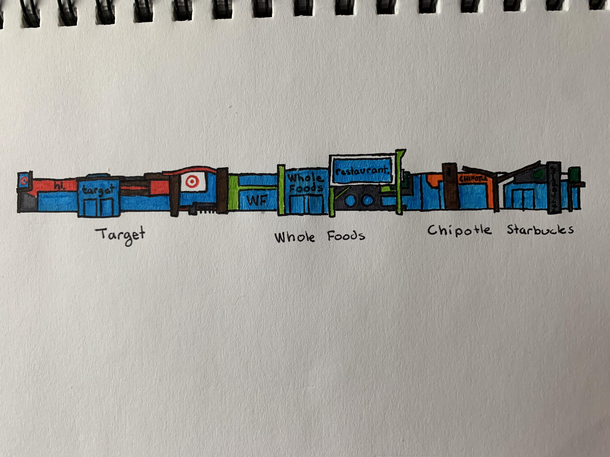 hi
target
WF
Whole
Foods
restaurant
CHIPOTLE
Target
Whole Foods
Chipotle
Starbucks